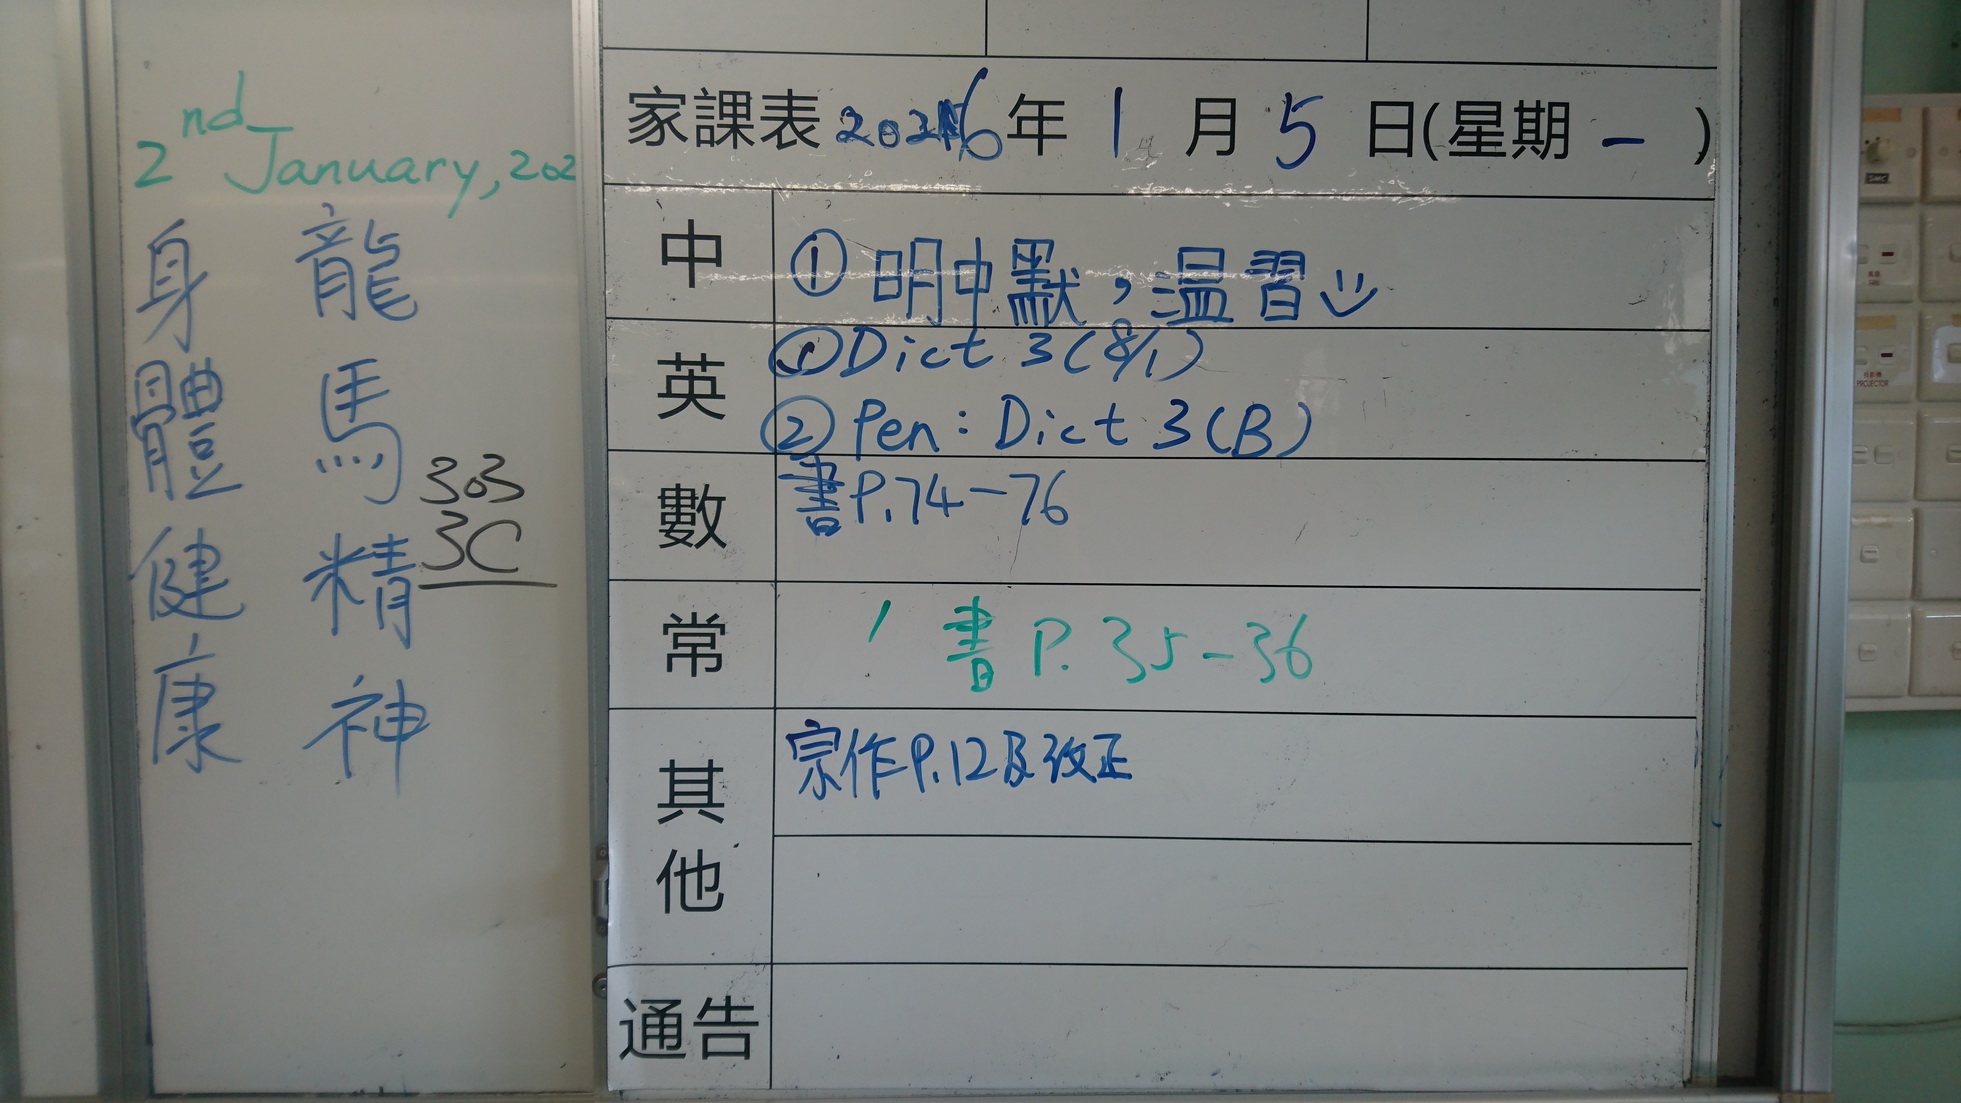 2nd January, 202
龍馬精神
身體健康
303
3C
家課表 2026年 1 月 5 日(星期 一 )
中 ① 明中默，温習
英 ① Dict 3 (8/1)
② Pen: Dict 3 (B)
數 書P.74-76
常 書 P. 35-36
其他 宗作P.12及改正
通告
PROJECTOR